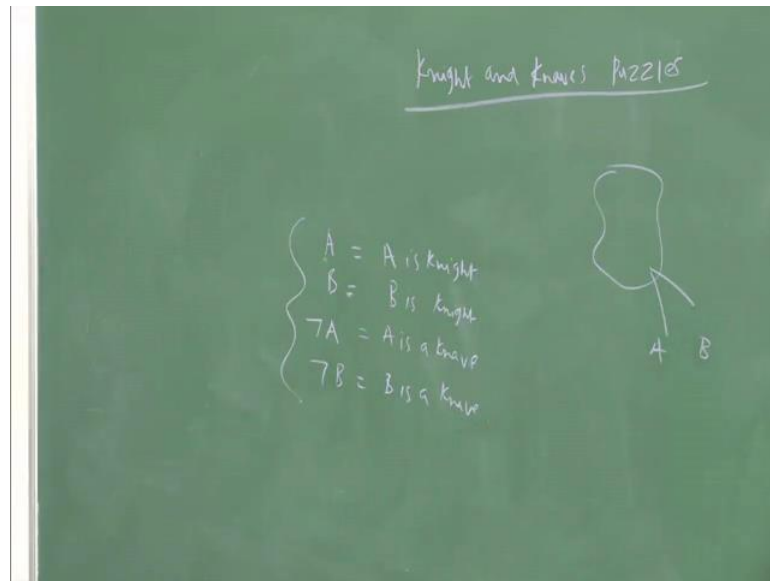 Knight and Knaves Puzzles
A = A is Knight
B = B is Knight
¬A = A is a Knave
¬B = B is a Knave
A B